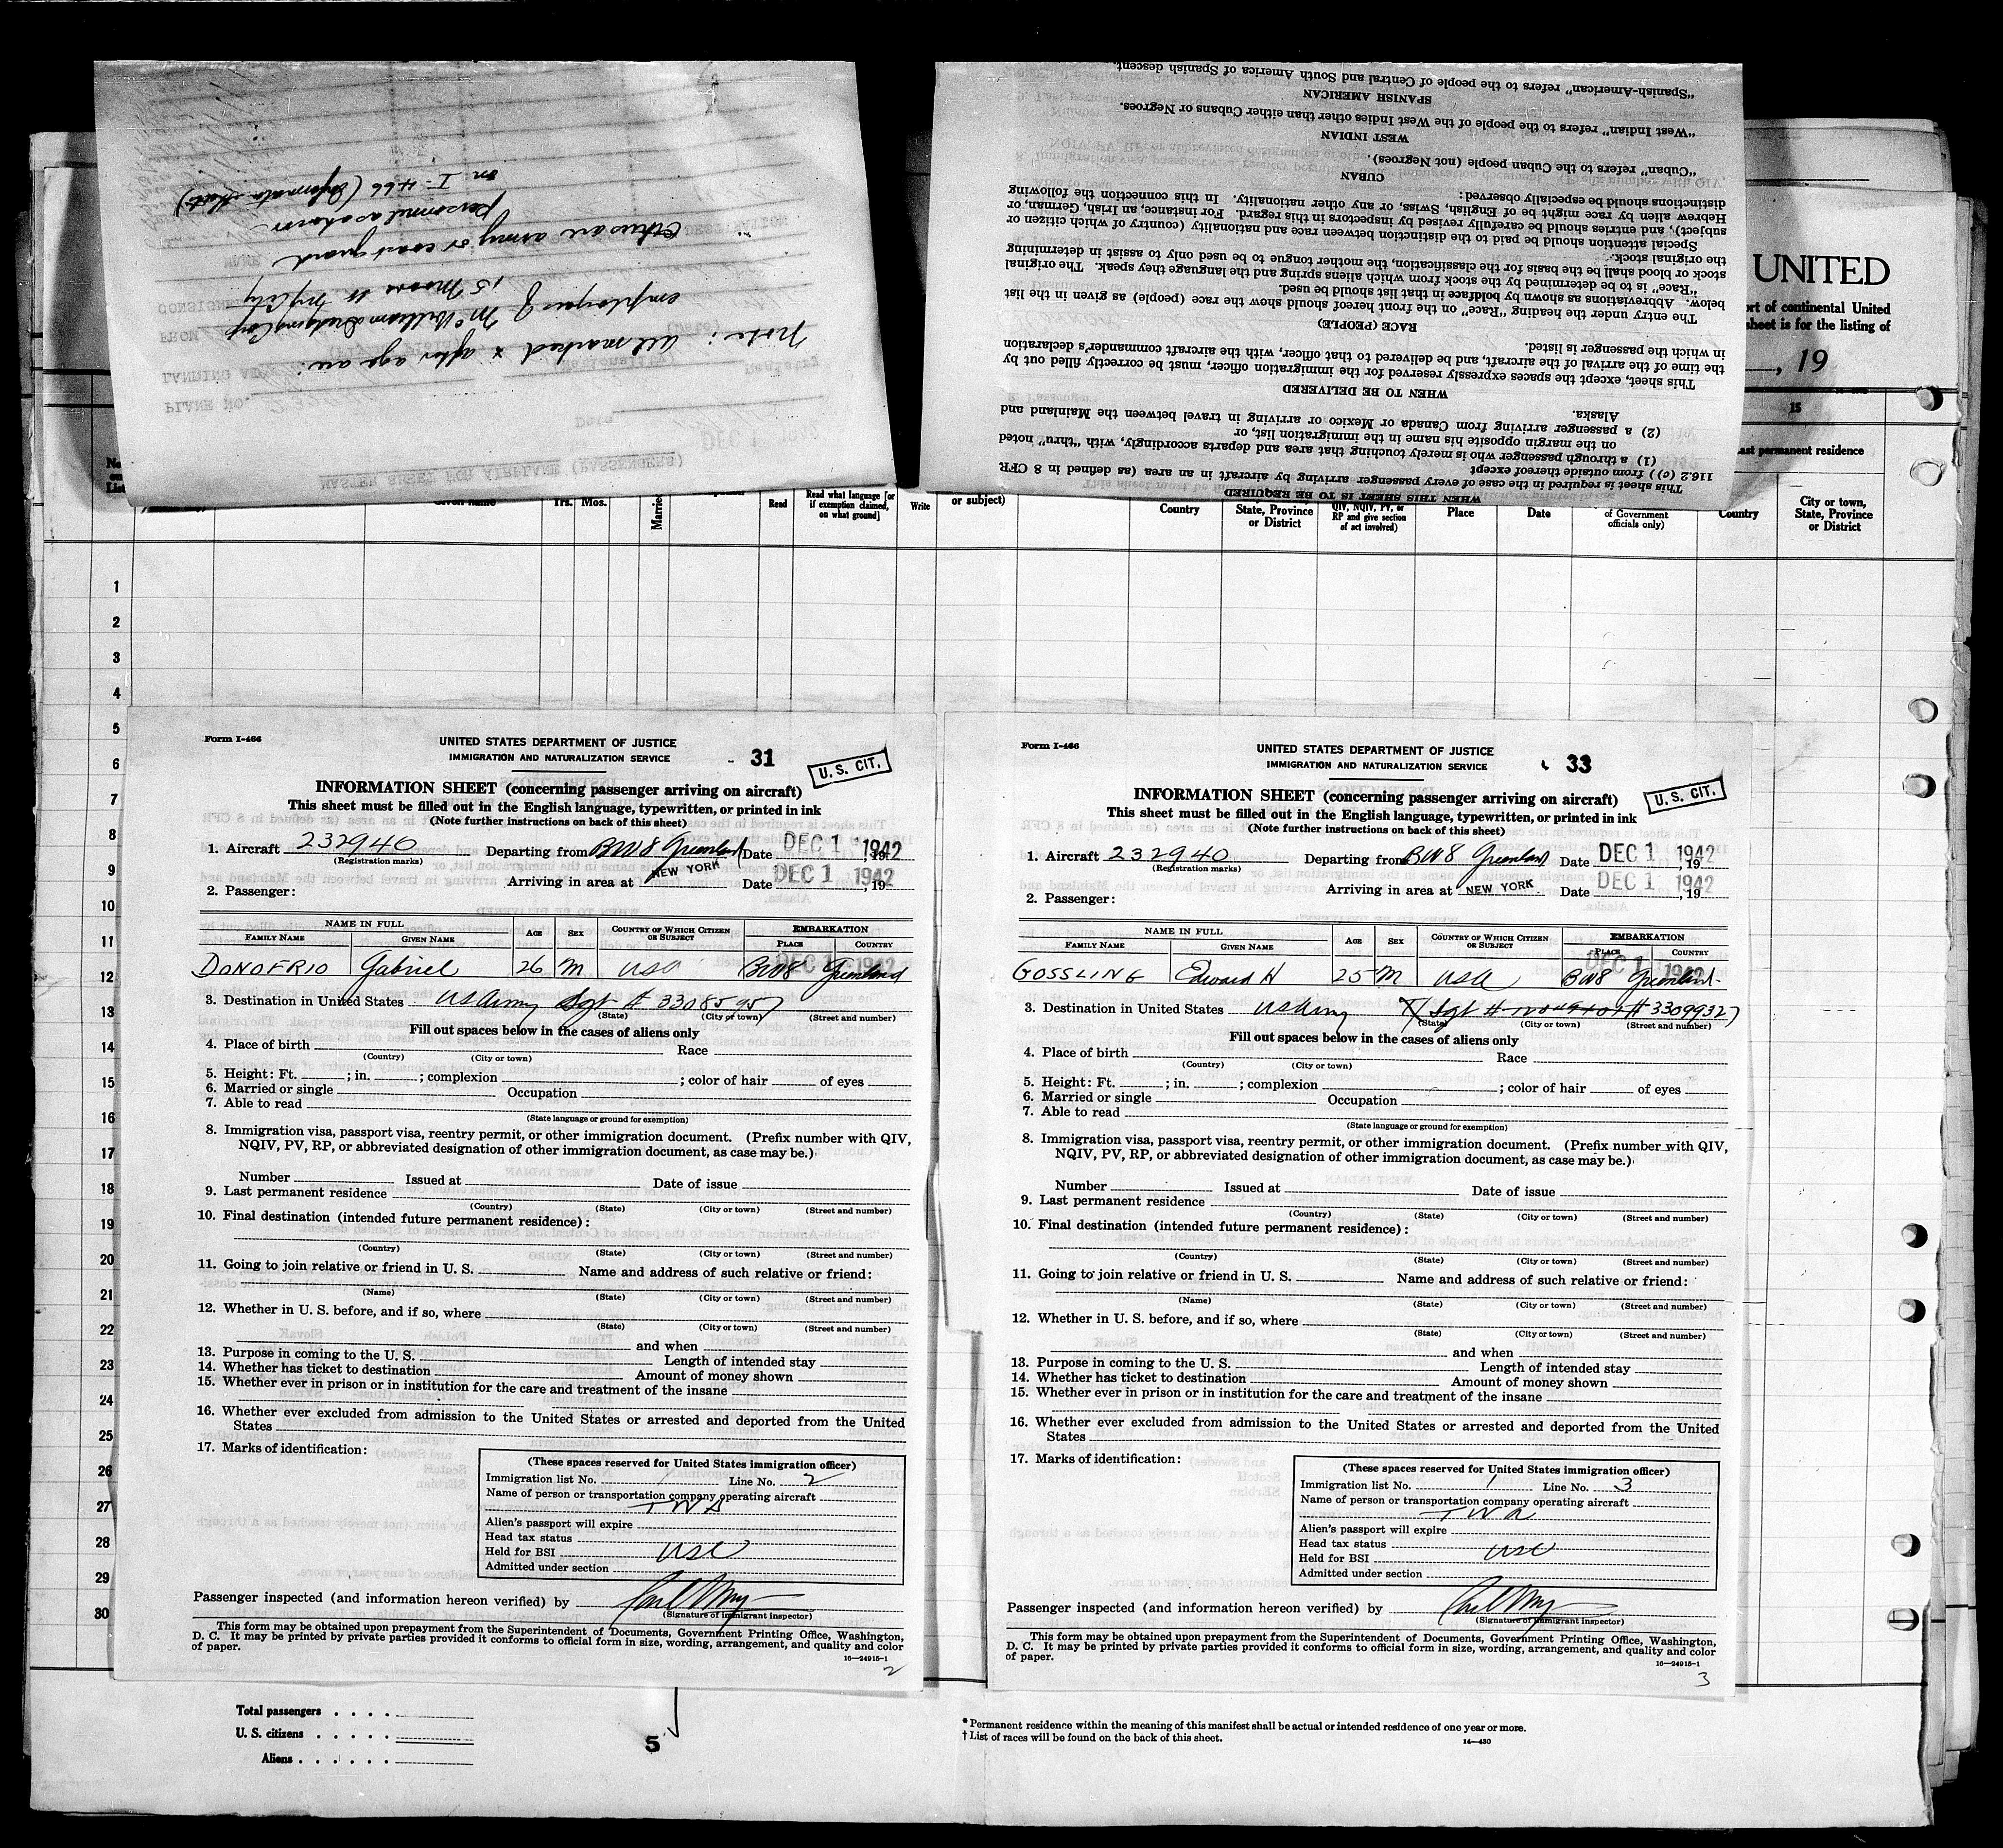 Note: All marked x after age are:
employees of McWilliams Dredging Corp
15 Moore St NY City
Others are army or coast guard
personnel as shown
on I-466 (Information Sheet)
MASTER SHEET FOR AIRPLANE (PASSENGERS)
Date
DEC 1
PLANE NO.
FROM
"Spanish-American" refers to the people of Central and South America of Spanish descent.
SPANISH AMERICAN
"West Indian" refers to the people of the West Indies other than either Cubans or Negroes.
WEST INDIAN
"Cuban" refers to the Cuban people (not Negroes).
CUBAN
distinctions should be especially observed:
Hebrew alien by race might be of English, Swiss, or any other nationality. In this connection the following
subject), and entries should be carefully revised by inspectors in this regard. For instance, an Irish, German, or
Special attention should be paid to the distinction between race and nationality (country of which citizen or
the original stock.
stock or blood shall be the basis for the classification, the mother tongue to be used only to assist in determining
"Race" is to be determined by the stock from which aliens spring and the language they speak. The original
below. Abbreviations as shown by boldface in that list should be used.
The entry under the heading "Race" on the front hereof should show the race (people) as given in the list
RACE (PEOPLE)
in which the passenger is listed.
the time of the arrival of the aircraft, and be delivered to that officer, with the aircraft commander's declaration
This sheet, except the spaces expressly reserved for the immigration officer, must be correctly filled out by
WHEN TO BE DELIVERED
Alaska.
(2) a passenger arriving from Canada or Mexico or arriving in travel between the Mainland and
on the margin opposite his name in the immigration list, or
(1) a through passenger who is merely touching that area and departs accordingly, with "thru" noted
116.2 (c)) from outside thereof except
This sheet is required in the case of every passenger arriving by aircraft in an area (as defined in 8 CFR
WHEN THIS SHEET IS TO BE REQUIRED
UNITED
ort of continental United
sheet is for the listing of
, 19
15
ast permanent residence
Given name
Yrs. Mos.
Married
Read
Read what language [or if exemption claimed, on what ground]
Write
or subject)
Country
City or town, State, Province or District
QIV, NQIV, PV, or RP and give section of act involved)
Place
Date
of Government officials only)
Country
City or town, State, Province or District
1
2
3
4
5
6
7
8
9
10
11
12
13
14
15
16
17
18
19
20
21
22
23
24
25
26
27
28
29
30
Form I-466
UNITED STATES DEPARTMENT OF JUSTICE
IMMIGRATION AND NATURALIZATION SERVICE
31
U. S. CIT.
INFORMATION SHEET (concerning passenger arriving on aircraft)
This sheet must be filled out in the English language, typewritten, or printed in ink
(Note further instructions on back of this sheet)
1. Aircraft 232940 Departing from BW8 Greenland Date DEC 1 1942, 19
(Registration marks)
Arriving in area at NEW YORK Date DEC 1 1942, 19
2. Passenger:
NAME IN FULL AGE SEX COUNTRY OF WHICH CITIZEN OR SUBJECT EMBARKATION
FAMILY NAME GIVEN NAME PLACE COUNTRY
DEC 1 1942
DONOFRIO Gabriel 26 M USA BW8 Greenland
3. Destination in United States US Army Sgt # 33085957
(State) (City or town) (Street and number)
Fill out spaces below in the cases of aliens only
4. Place of birth Race
(Country) (City or town)
5. Height: Ft. ; in. ; complexion ; color of hair of eyes
6. Married or single Occupation
7. Able to read
(State language or ground for exemption)
8. Immigration visa, passport visa, reentry permit, or other immigration document. (Prefix number with QIV,
NQIV, PV, RP, or abbreviated designation of other immigration document, as case may be.)
Number Issued at Date of issue
9. Last permanent residence
(Country) (State) (City or town) (Street and number)
10. Final destination (intended future permanent residence):
(Country) (State) (City or town) (Street and number)
11. Going to join relative or friend in U. S. Name and address of such relative or friend:
(Name) (State) (City or town) (Street and number)
12. Whether in U. S. before, and if so, where
(State) (City or town) (Street and number)
and when
13. Purpose in coming to the U. S. Length of intended stay
14. Whether has ticket to destination Amount of money shown
15. Whether ever in prison or in institution for the care and treatment of the insane
16. Whether ever excluded from admission to the United States or arrested and deported from the United
States
17. Marks of identification:
(These spaces reserved for United States immigration officer)
Immigration list No. 1 Line No. 2
Name of person or transportation company operating aircraft
TWA
Alien's passport will expire
Head tax status
Held for BSI USC
Admitted under section
Passenger inspected (and information hereon verified) by
(Signature of immigrant inspector)
This form may be obtained upon prepayment from the Superintendent of Documents, Government Printing Office, Washington,
D. C. It may be printed by private parties provided it conforms to official form in size, wording, arrangement, and quality and color
of paper.
16—24915-1
2
Form I-466
UNITED STATES DEPARTMENT OF JUSTICE
IMMIGRATION AND NATURALIZATION SERVICE
33
U. S. CIT.
INFORMATION SHEET (concerning passenger arriving on aircraft)
This sheet must be filled out in the English language, typewritten, or printed in ink
(Note further instructions on back of this sheet)
1. Aircraft 232940 Departing from BW8 Greenland Date DEC 1 1942, 19
(Registration marks)
Arriving in area at NEW YORK Date DEC 1 1942, 19
2. Passenger:
NAME IN FULL AGE SEX COUNTRY OF WHICH CITIZEN OR SUBJECT EMBARKATION
FAMILY NAME GIVEN NAME PLACE COUNTRY
DEC 1 1942
GOSSLING Edward H 25 M USA BW8 Greenland
3. Destination in United States US Army T/Sgt # 33099327
(State) (City or town) (Street and number)
Fill out spaces below in the cases of aliens only
4. Place of birth Race
(Country) (City or town)
5. Height: Ft. ; in. ; complexion ; color of hair of eyes
6. Married or single Occupation
7. Able to read
(State language or ground for exemption)
8. Immigration visa, passport visa, reentry permit, or other immigration document. (Prefix number with QIV,
NQIV, PV, RP, or abbreviated designation of other immigration document, as case may be.)
Number Issued at Date of issue
9. Last permanent residence
(Country) (State) (City or town) (Street and number)
10. Final destination (intended future permanent residence):
(Country) (State) (City or town) (Street and number)
11. Going to join relative or friend in U. S. Name and address of such relative or friend:
(Name) (State) (City or town) (Street and number)
12. Whether in U. S. before, and if so, where
(State) (City or town) (Street and number)
and when
13. Purpose in coming to the U. S. Length of intended stay
14. Whether has ticket to destination Amount of money shown
15. Whether ever in prison or in institution for the care and treatment of the insane
16. Whether ever excluded from admission to the United States or arrested and deported from the United
States
17. Marks of identification:
(These spaces reserved for United States immigration officer)
Immigration list No. 1 Line No. 3
Name of person or transportation company operating aircraft
TWA
Alien's passport will expire
Head tax status
Held for BSI USC
Admitted under section
Passenger inspected (and information hereon verified) by
(Signature of immigrant inspector)
This form may be obtained upon prepayment from the Superintendent of Documents, Government Printing Office, Washington,
D. C. It may be printed by private parties provided it conforms to official form in size, wording, arrangement, and quality and color
of paper.
16—24915-1
3
Total passengers
U. S. citizens
Aliens
5
* Permanent residence within the meaning of this manifest shall be actual or intended residence of one year or more.
† List of races will be found on the back of this sheet.
14—430